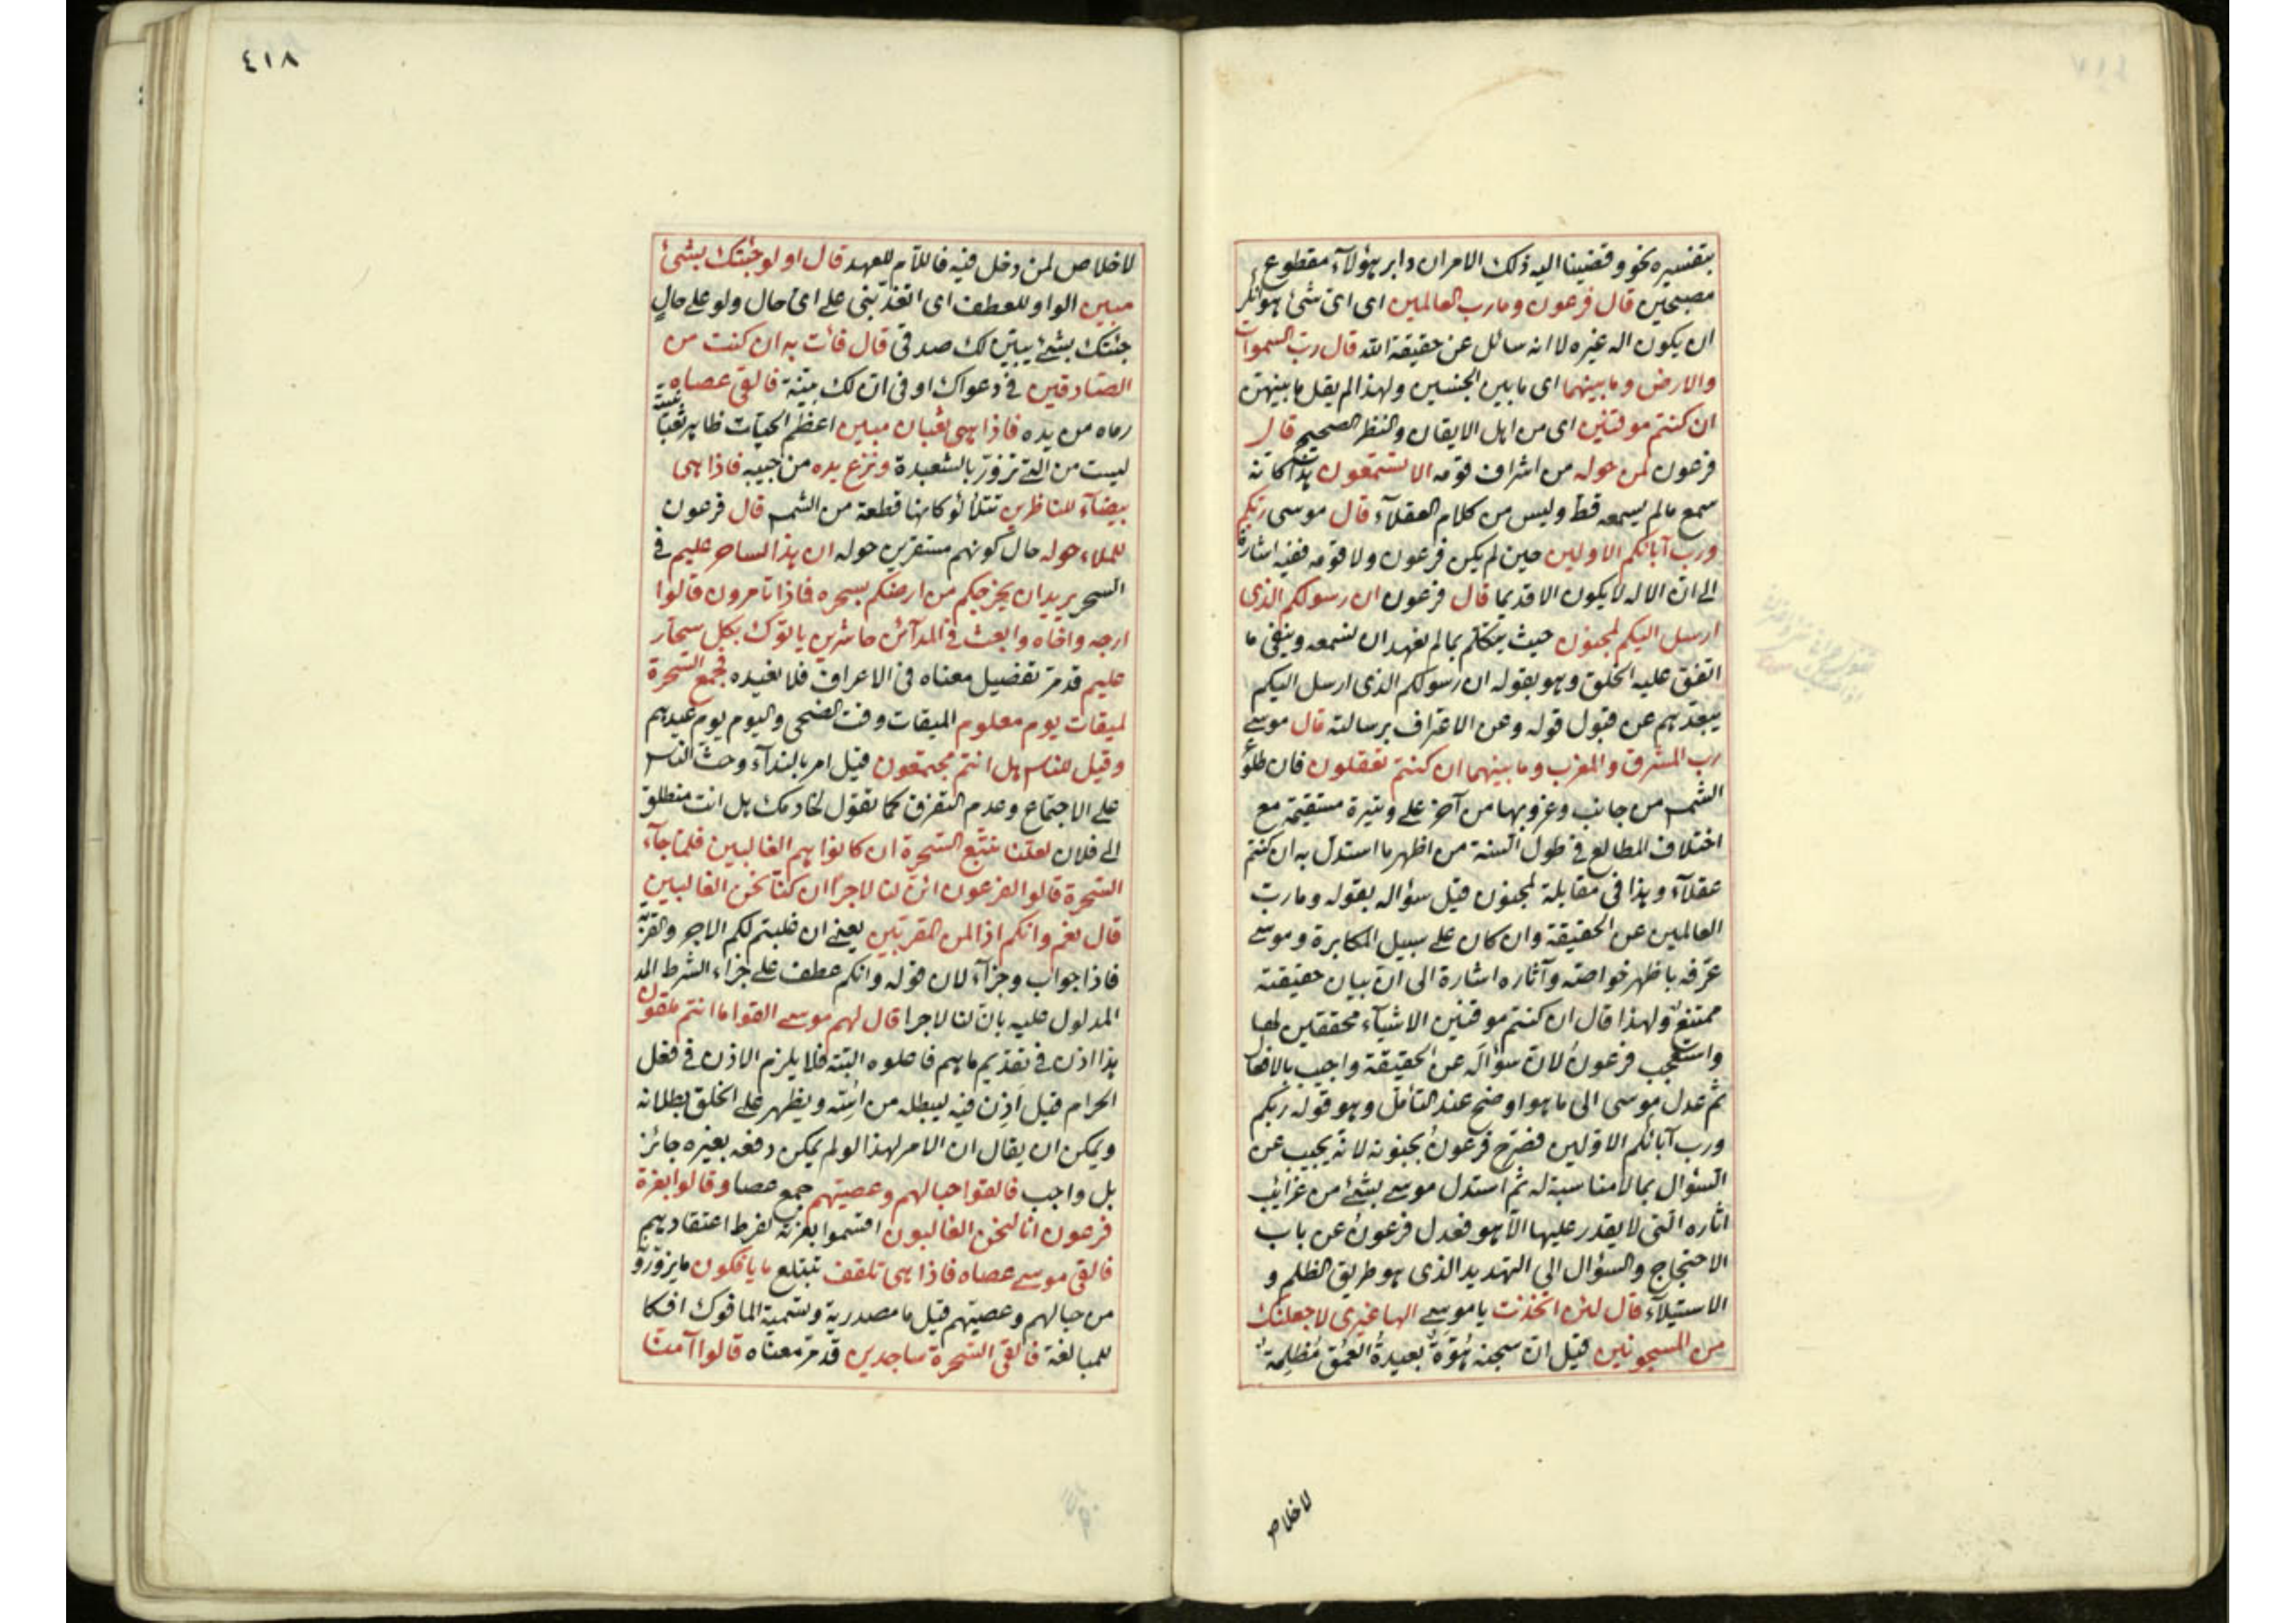 بتفسيره نحو وقضينا اليه ذلك الامر ان دابر هؤلاء مقطوع
مصبحين قال فرعون وما رب العالمين اى اى شئ هو انكر
ان يكون اله غيره لا انه سائل عن حقيقة الله قال رب السموات
والارض وما بينهما اى ما بين الجنسين ولهذا لم يقل ما بينهن
ان كنتم موقنين اى من اهل الايقان والنظر الصحيح قال
فرعون لمن حوله من اشراف قومه الا تستمعون هذا كانه
سمع ما لم يسمعه قط وليس من كلام العقلاء قال موسى ربكم
ورب آبائكم الاولين حين لم يكن فرعون ولا قومه ففيه اشارة
الى ان الاله لا يكون الا قديما قال فرعون ان رسولكم الذى
ارسل اليكم لمجنون حيث يتكلم بما لم نعهد ان نسمعه وينفى ما
اتفق عليه الخلق وهو بقوله ان رسولكم الذى ارسل اليكم
يبعدهم عن قبول قوله وعن الاعتراف برسالته قال موسى
رب المشرق والمغرب وما بينهما ان كنتم تعقلون فان طلوع
الشمس من جانب وغروبها من آخر على وتيرة مستقيمة مع
اختلاف المطالع فى طول السنة من اظهر ما استدل به ان كنتم
عقلاء وهذا فى مقابلة لمجنون قيل سؤاله بقوله وما رب
العالمين عن الحقيقة وان كان على سبيل المكابرة وموسى
عرفه باظهر خواصه وآثاره اشارة الى ان بيان حقيقته
ممتنع ولهذا قال ان كنتم موقنين الاشياء محققين لها
واستعجب فرعون لان سؤاله عن الحقيقة واجيب بالافعال
ثم عدل موسى الى ما هو اوضح عند التأمل وهو قوله ربكم
ورب آبائكم الاولين فصرح فرعون بجنونه لانه يجيب عن
السؤال بما لا مناسبة له ثم استدل موسى بشئ من غرائب
اثاره التى لا يقدر عليها الا هو فعدل فرعون عن باب
الاحتجاج والسؤال الى التهديد الذى هو طريق الظلم و
الاستيلاء قال لئن اتخذت يا موسى الها غيرى لاجعلنك
من المسجونين قيل ان سجنه هُوَّةٌ بعيدةُ العمق مُظلِمةٌ
لاخلاص
٤١٨
لاخلاص لمن دخل فيه فاللام للعهد قال اولو جئتك بشئ
مبين الواو للعطف اى اتعذبنى على اى حال ولو على حالٍ
جئتك بشئ يبين لك صدقى قال فائت به ان كنت من
الصادقين فى دعواك او فى ان لك بينة فالقى عصاه
رماه من يده فاذا هى ثعبان مبين اعظم الحيات ظاهر ثعبانيته
ليست من التى تزور بالشعبدة ونزع يده من جيبه فاذا هى
بيضاء للناظرين تتلألؤ كانها قطعة من الشمس قال فرعون
للملاء حوله حال كونهم مستقرين حوله ان هذا لساحر عليم فى
السحر يريد ان يخرجكم من ارضكم بسحره فاذا تامرون قالوا
ارجه واخاه وابعث فى المدآئن حاشرين ياتوك بكل سحار
عليم قد مر تفصيل معناه فى الاعراف فلا نعيده فجمع السحرة
لميقات يوم معلوم الميقات وقت الضحى واليوم يوم عيدهم
وقيل للناس هل انتم مجتمعون قيل امر بالنداء وحث الناس
على الاجتماع وعدم التفرق كما تقول لخادمك هل انت منطلق
الى فلان لعلنا نتبع السحرة ان كانوا هم الغالبين فلما جآء
السحرة قالوا لفرعون ائن لنا لاجرا ان كنا نحن الغالبين
قال نعم وانكم اذا لمن المقربين يعنى ان غلبتم لكم الاجر والقربة
فاذا جواب وجزآء لان قوله وانكم عطف على جزاء الشرط المد
المدلول عليه بان لنا لاجرا قال لهم موسى القوا ما انتم ملقون
هذا اذن فى تقديم ما هم فاعلوه البتة فلا يلزم الاذن فى فعل
الحرام قيل اَذِن فيه ليبطله من اسّه ويظهر على الخلق بطلانه
ويمكن ان يقال ان الامر لهذا لو لم يمكن دفعه بغيره جائز
بل واجب فالقوا حبالهم وعصيهم جمع عصا وقالوا بعزة
فرعون انا لنحن الغالبون اقسموا بعزته لفرط اعتقادهم
فالقى موسى عصاه فاذا هى تلقف تبتلع ما يافكون ما يزورو
من حبالهم وعصيهم قيل ما مصدرية وتسمية المافوك افكا
للمبالغة فالقى السحرة ساجدين قد مر معناه قالوا آمنا